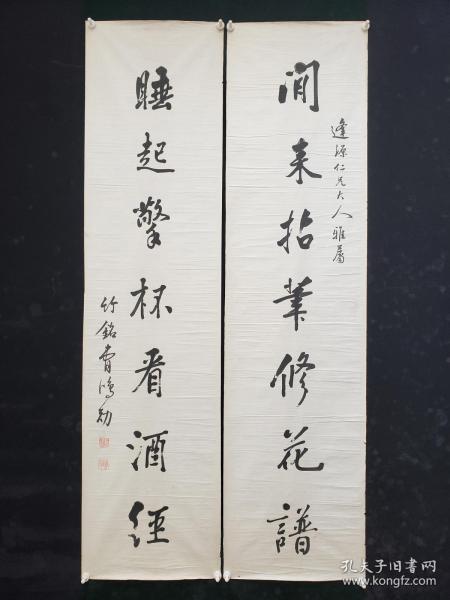 逢源仁兄大人雅属
閒来拈筆修花譜
睡起擎杯看酒經
竹銘曹鴻勛
孔夫子旧书网
www.kongfz.com